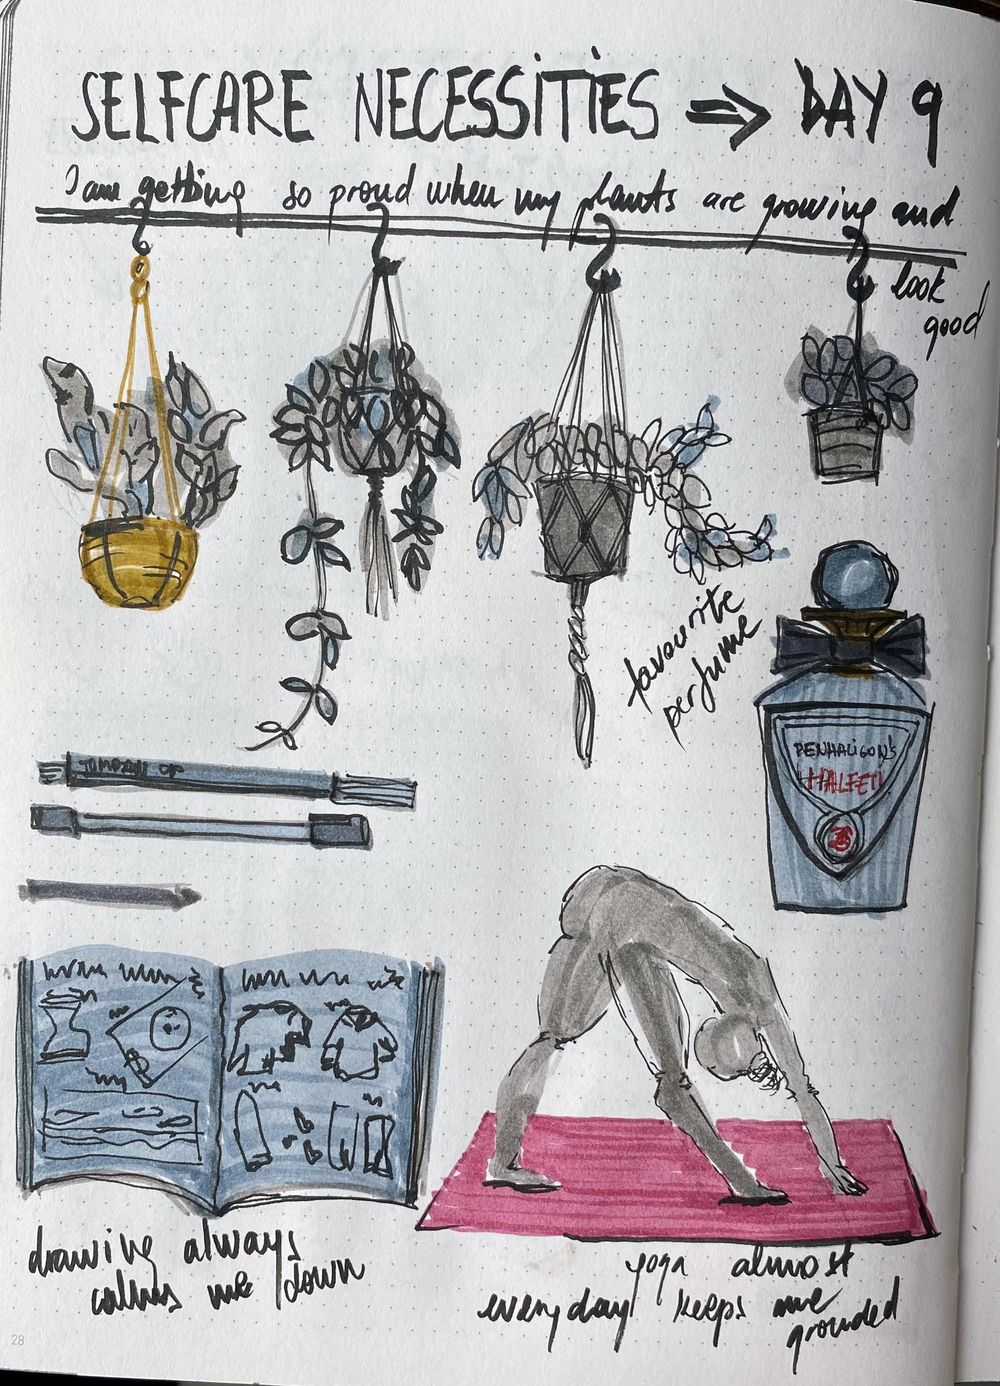 SELFCARE NECESSITIES ⇒ DAY 9
I am getting so proud when my plants are growing and
look
good
favourite
perfume
TOMBOW
PENHALIGON'S
HALFETI
drawing always
calms me down
yoga almost
everyday keeps me
grounded
28